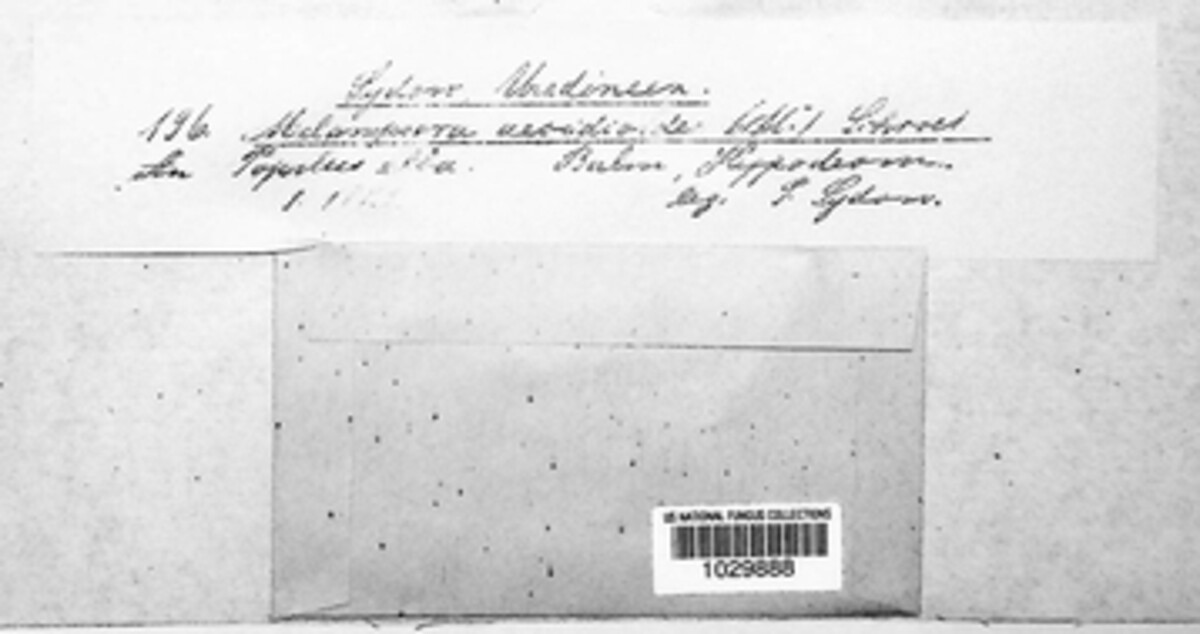 Sydow, Uredineen.
196 Melampsora aecidioides (DC.) Schroet
An Populus alba. Berlin, Hippodrom.
leg. P. Sydow.
US NATIONAL FUNGUS COLLECTIONS
1029888